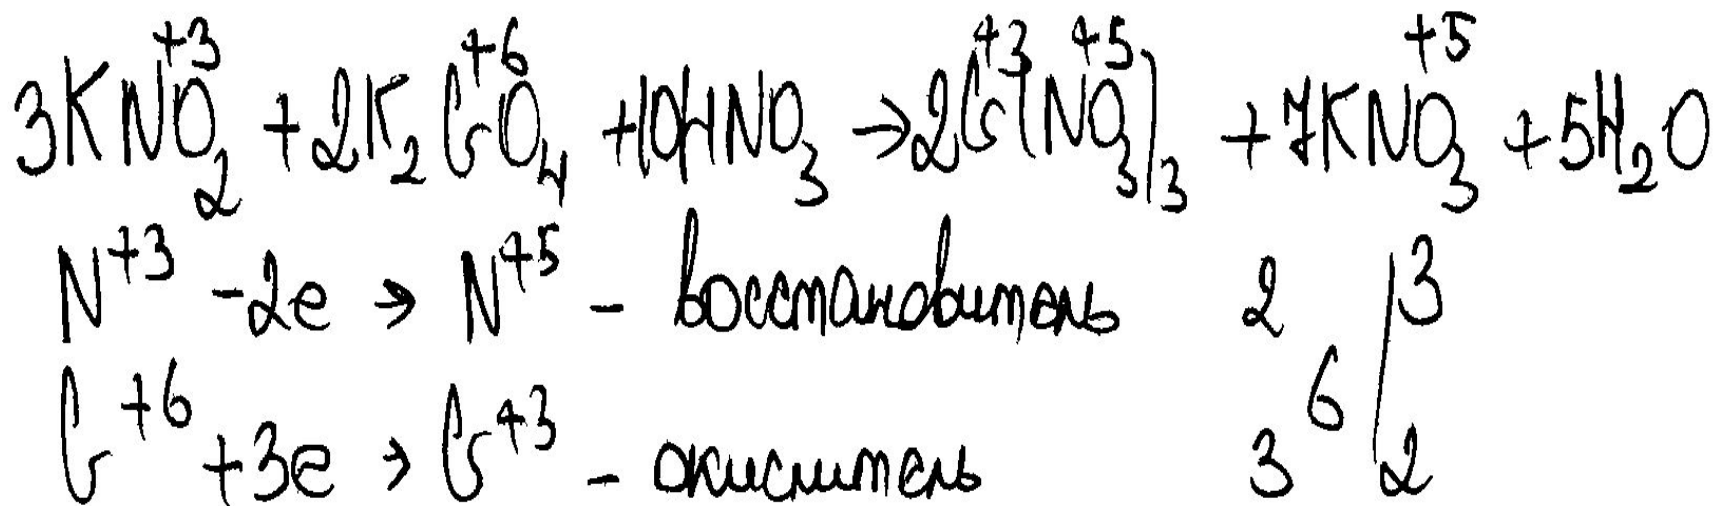 3KN⁺³O₂ + 2K₂Cr⁺⁶O₄ + 10HNO₃ → 2Cr⁺³(N⁺⁵O₃)₃ + 7KN⁺⁵O₃ + 5H₂O
N⁺³ - 2e → N⁺⁵ - восстановитель 2 | 3
6
Cr⁺⁶ + 3e → Cr⁺³ - окислитель 3 | 2